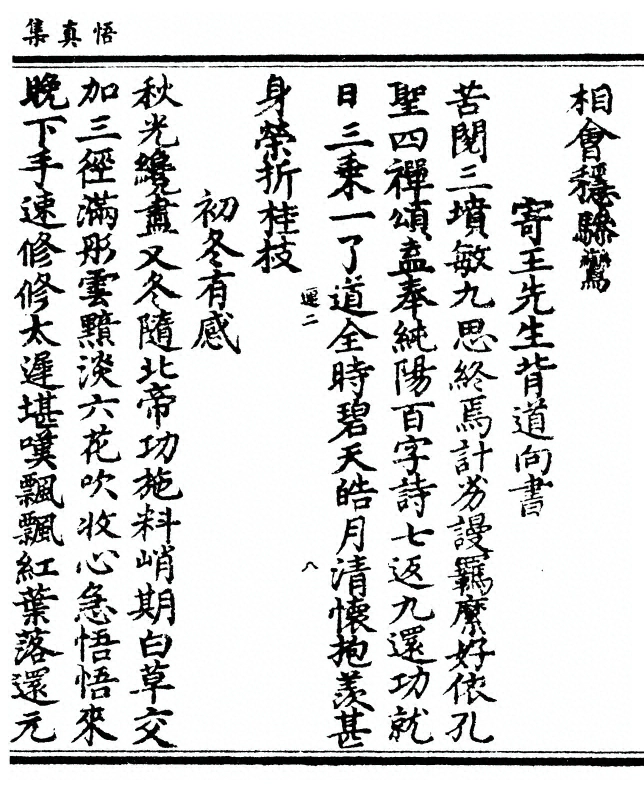 悟真集
相會穩驂鸞
寄王先生背道向書
苦閱三墳敏九思終焉計劣謾羈縻好依孔
聖四禪頌盍奉純陽百字詩七返九還功就
日三乗一了道全時碧天皓月清懷抱羨甚
運二
八
身榮折桂枝
初冬有感
秋光纔盡又冬隨北帝功施料峭期白草交
加三徑滿彤雲黯淡六花吹收心急悟悟來
晚下手速修修太遲堪嘆飄飄紅葉落還元